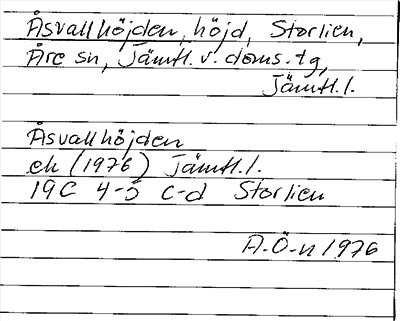 Åsvallhöjden, höjd, Storlien,
Åre sn, Jämtl. v. doms. tg,
Jämtl. l.
Åsvallhöjden
ek (1976) Jämtl. l.
19C 4-5 c-d Storlien
A.Ö-n 1976